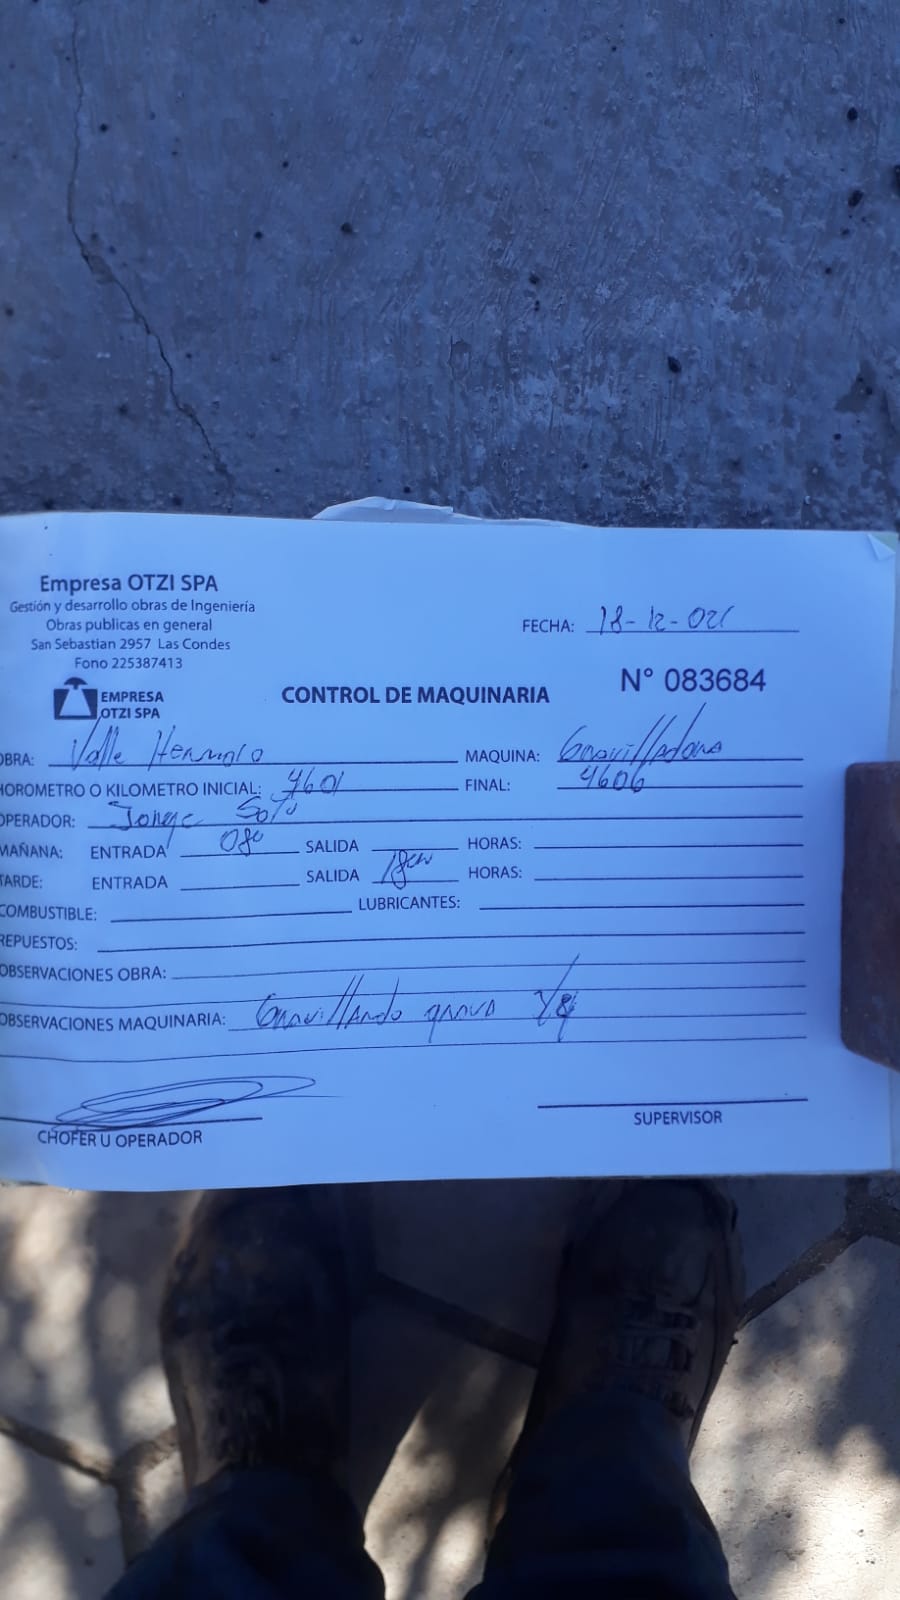 Empresa OTZI SPA
Gestión y desarrollo obras de Ingeniería
Obras publicas en general
San Sebastian 2957 Las Condes
Fono 225387413
FECHA: 18-12-021
EMPRESA
OTZI SPA
CONTROL DE MAQUINARIA
N° 083684
OBRA: Valle Hermoso MAQUINA: Gravilladora
HOROMETRO O KILOMETRO INICIAL: 4601 FINAL: 4606
OPERADOR: Jorge Soto
MAÑANA: ENTRADA 080 SALIDA HORAS:
TARDE: ENTRADA SALIDA HORAS:
COMBUSTIBLE: LUBRICANTES:
REPUESTOS:
OBSERVACIONES OBRA:
OBSERVACIONES MAQUINARIA: Gravillando grava
CHOFER U OPERADOR
SUPERVISOR